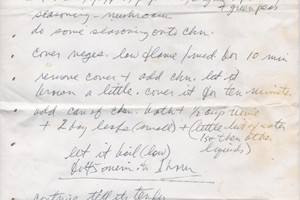 + green peas
seasoning - mushroom
do some seasoning onto chn.
cover veges. low flame/med for 10 min
remove cover + add chn. let it
brown a little. cover it for ten minutes
add can of chn. broth + ½ cup wine
+ 2 bay leafs (small) + (little bit of water
so then other
liquids)
let it boil (low)
1 hour
till its tender